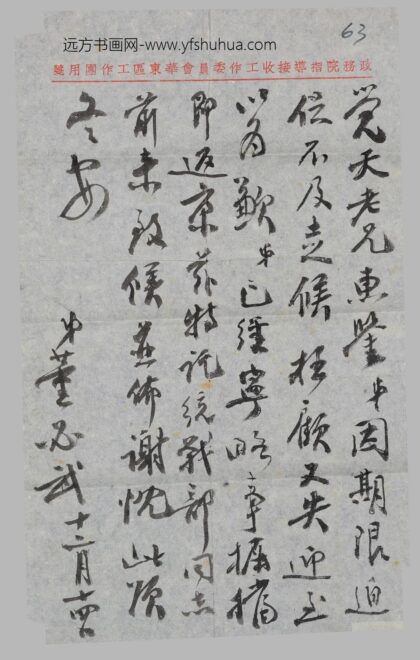 远方书画网-www.yfshuhua.com
63
政務院指導接收工作委員會華東區工作團用箋
覺天老兄惠鑒弟因期限迫
促不及走候 枉顧又失迎至
以為歉弟已經寧略事摒擋
即返京茲特託統戰部同志
前来致候並佈謝忱此頌
冬安
弟董必武十二月十四日